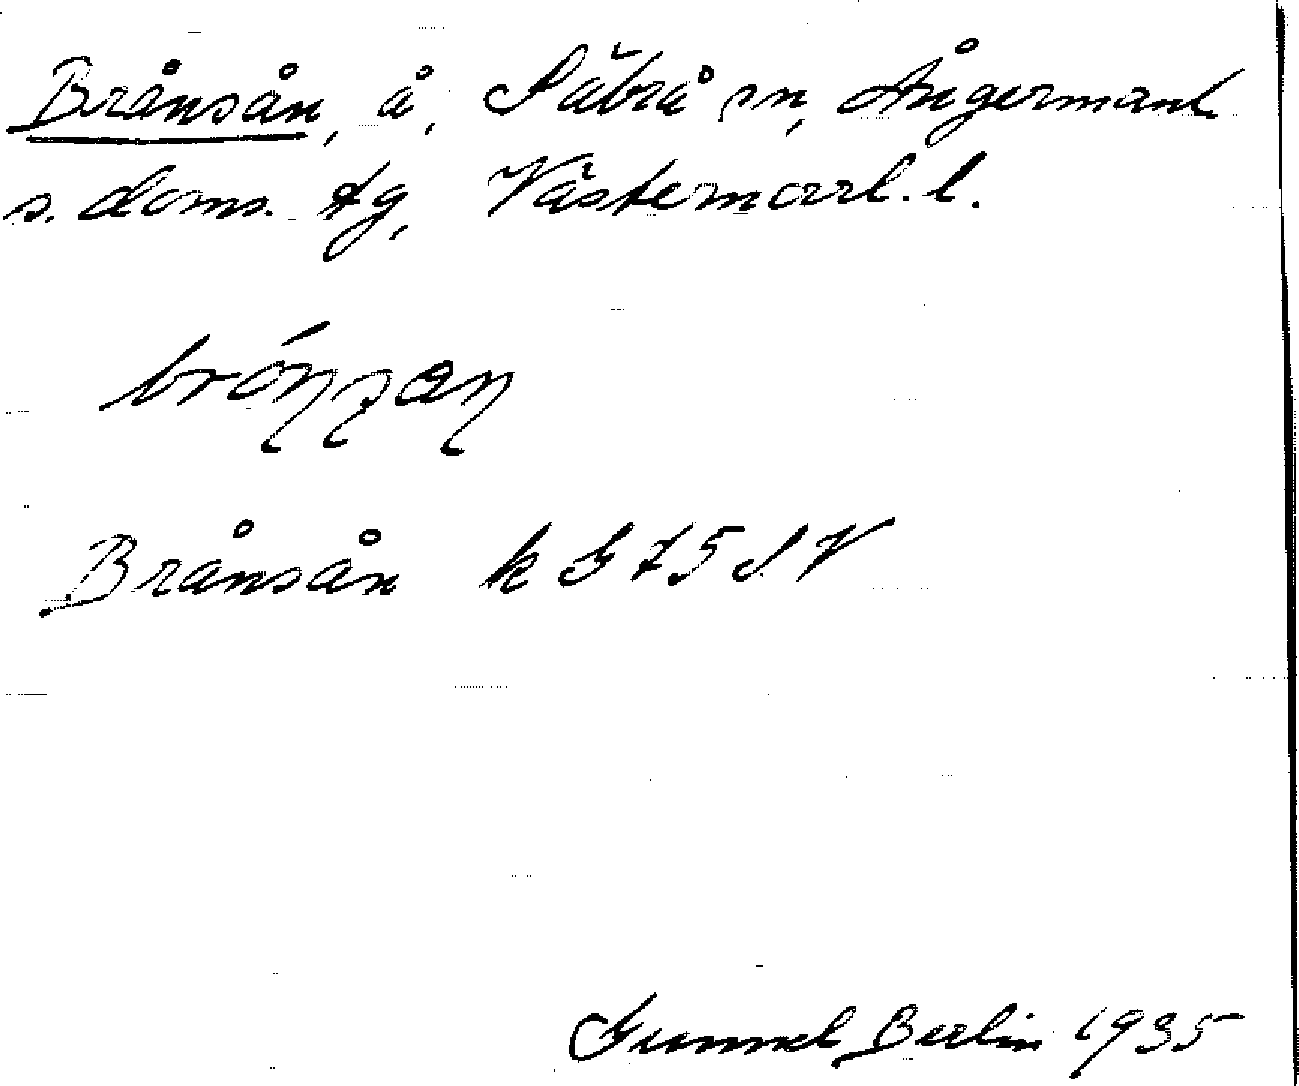 Brånsån, å, Säbrå sn, Ångermanl.
s. doms. tg, Västernorrl. l.
brónsan
Brånsån k G 75 SV
Gunnel Berlin 1935